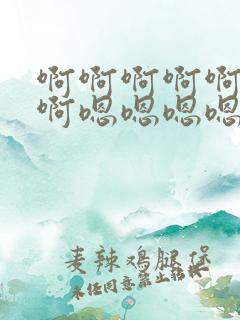 啊啊啊啊啊
啊嗯嗯嗯嗯
麦辣鸡腿堡
未经同意禁止转载